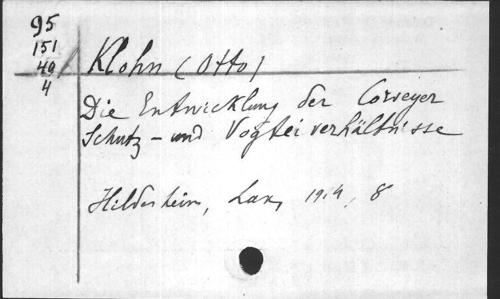 95
151
49
4
Klohn (Otto)
Die Entwicklung der Corveyer
Schutz - und Vogteiverhältnisse
Hildesheim, Lax, 1914, 8°